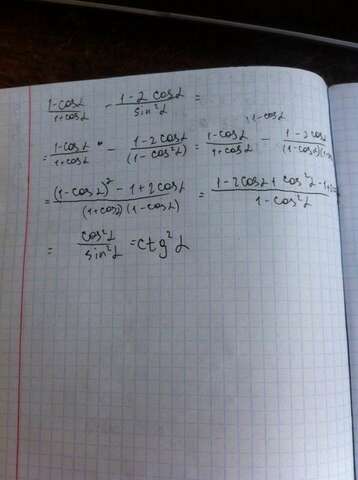 (1-cosα)/(1+cosα) - (1-2cosα)/(sin²α) =
= (1-cosα)/(1+cosα) - (1-2cosα)/((1-cos²α)) = (1-cosα)/(1+cosα) - (1-2cosα)/((1-cosα)(1+
= ((1-cosα)² - 1+2cosα)/((1+cosα)(1-cosα)) = (1-2cosα+cos²α-1+2cos)/(1-cos²α)
= cos²α/sin²α = ctg²α